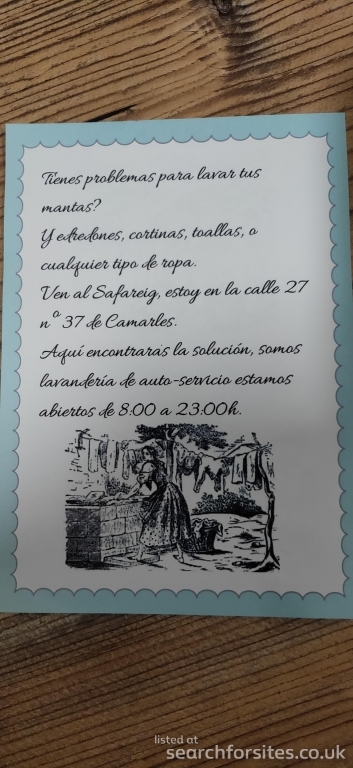 Tienes problemas para lavar tus
mantas?
Y edredones, cortinas, toallas, o
cualquier tipo de ropa.
Ven al Safareig, estoy en la calle 27
nº 37 de Camarles.
Aquí encontrarás la solución, somos
lavandería de auto-servicio estamos
abiertos de 8:00 a 23:00h.
listed at
searchforsites.co.uk